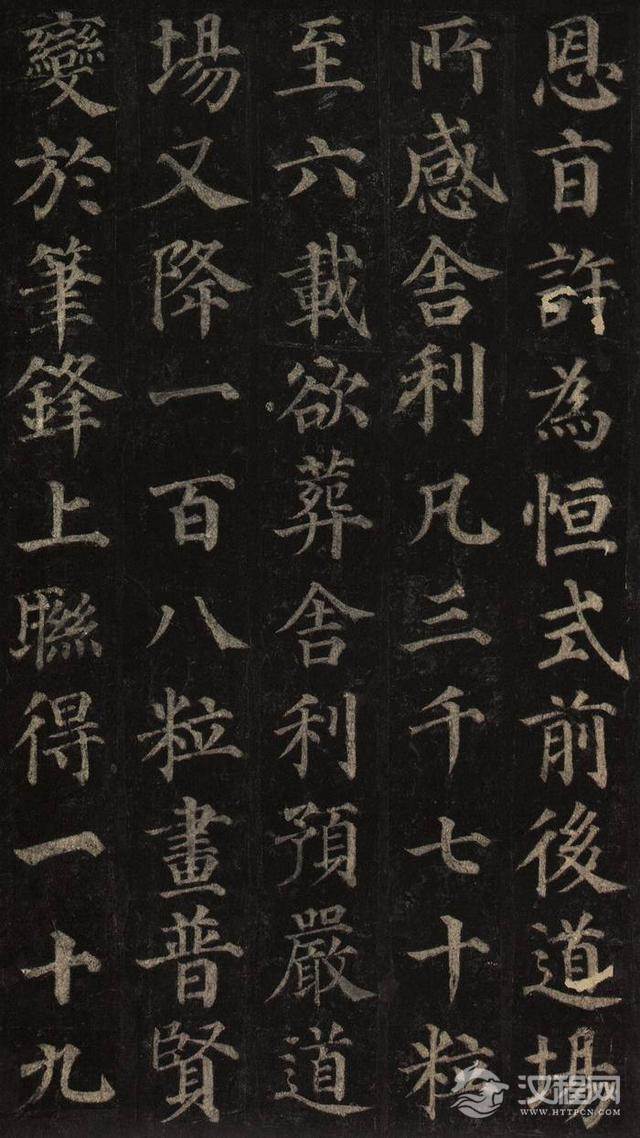 恩旨許為恒式前後道場
所感舍利凡三千七十粒
至六載欲葬舍利預嚴道
場又降一百八粒畫普賢
變於筆鋒上聯得一十九
汉程网
WWW.HTTPCN.COM